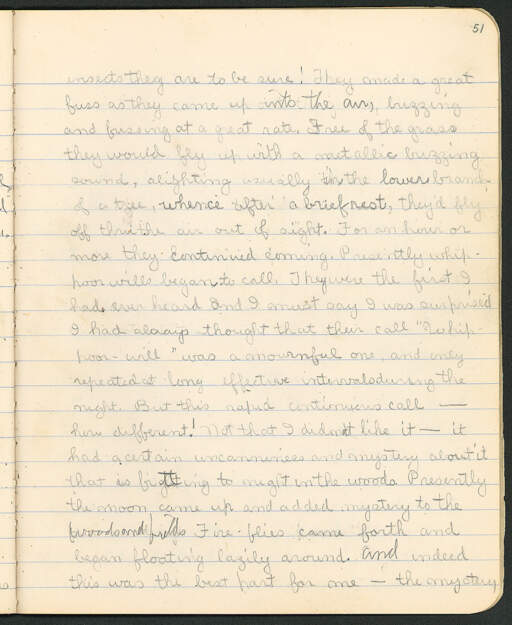 51
insects they are to be sure! They made a great
fuss as they came up into the air, buzzing
and fussing at a great rate. Free of the grass
they would fly up with a metallic buzzing
sound, alighting usually in the lower branch
of a tree, whence after a brief rest, they'd fly
off thru the air out of sight. For an hour or
more they continued coming. Presently whip-
poor wills began to call. They were the first I
had ever heard and I must say I was surprised
I had always thought that their call "Whip-
poor-will" was a mournful one, and only
repeated at long effective intervals during the
night. But this rapid continuous call —
how different! Not that I didn't like it — it
had a certain uncanniness and mystery about it
that is fitting to night in the woods Presently
the moon came up and added mystery to the
woods and fields Fire-flies came forth and
began floating lazily around. And indeed
this was the best part for me — the mystery